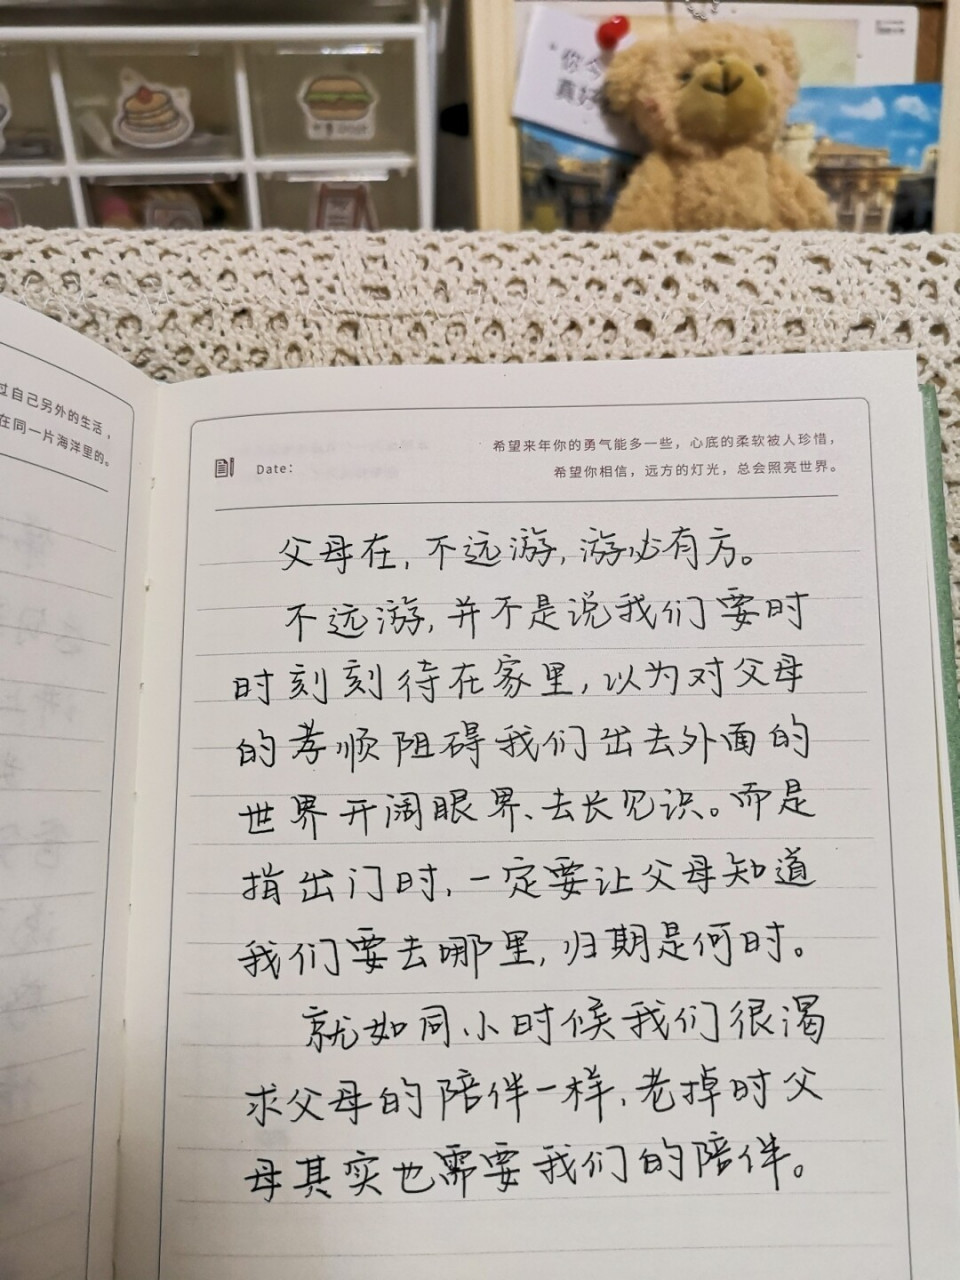 你今
真好
过自己另外的生活，
在同一片海洋里的。
Date:
希望来年你的勇气能多一些，心底的柔软被人珍惜，
希望你相信，远方的灯光，总会照亮世界。
父母在，不远游，游必有方。
不远游，并不是说我们要时
时刻刻待在家里，以为对父母
的孝顺阻碍我们出去外面的
世界开阔眼界、去长见识。而是
指出门时，一定要让父母知道
我们要去哪里，归期是何时。
就如同小时候我们很渴
求父母的陪伴一样，老掉时父
母其实也需要我们的陪伴。